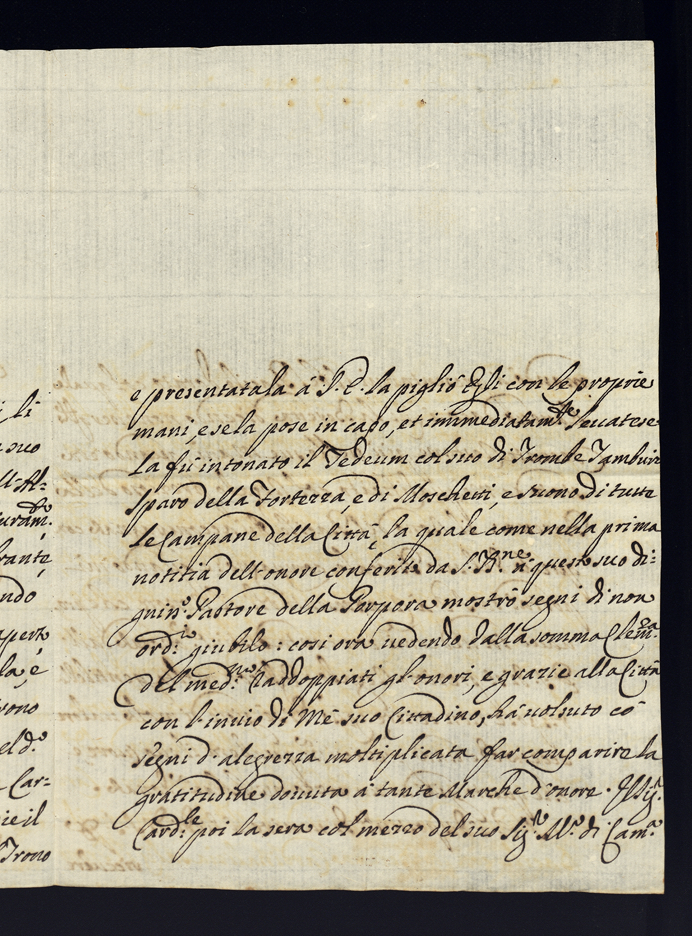 e presentatala à S. E. la pigliò Egli con le proprie
mani, e se la pose in capo, et immediatam.te levatese
la fù intonato il Tedeum col suo di Trombe Tamburi
sparo della Fortezza, e di Moschetti, e suono di tutte
le Campane della Città, la quale come nella prima
notitia dell'onore conferito da S. B.ne à questo suo di:
gnin.o Pastore della Porpora mostrò segni di non
ord.io giubilo: così ora vedendo dalla somma Clem.za
del med.mo raddoppiati gl'onori, e grazie alla Città
con l'invio di Me suo Cittadino, hà volsuto cõ
segni d'alegrezza moltiplicata far comparire la
gratitudine douuta à tante Marche d'onore. Il Sig.r
Card.le poi la sera col mezzo del suo Sig.r M.ro di Cam.a
li
suo
turam.te
rante
ndo
aperto
la, e
rono
el d.o
Car-
ie il
Trono